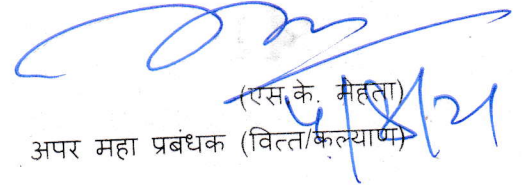 (एस.के. मेहता)
अपर महा प्रबंधक (वित्त/कल्याण)